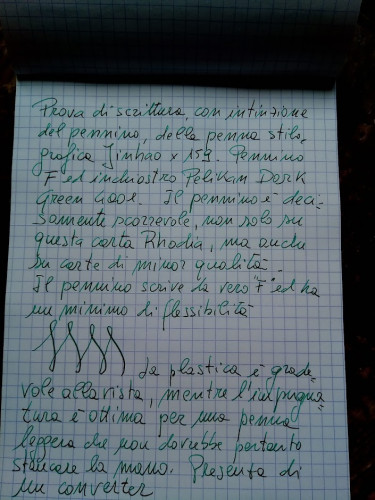 Prova di scrittura, con intinzione
del pennino, della penna stilo,
grafica Jinhao x 159. Pennino
F ed inchiostro Pelikan Dark
Green 4001. Il pennino è deci-
samente scorrevole, non solo su
questa carta Rhodia, ma anche
su carte di minor qualità.
Il pennino scrive da vero "F" ed ha
un minimo di flessibilità
La plastica è grade-
vole alla vista, mentre l'impugna-
tura è ottima per una penna
leggera che non dovrebbe pertanto
stancare la mano. Presenta di
un converter